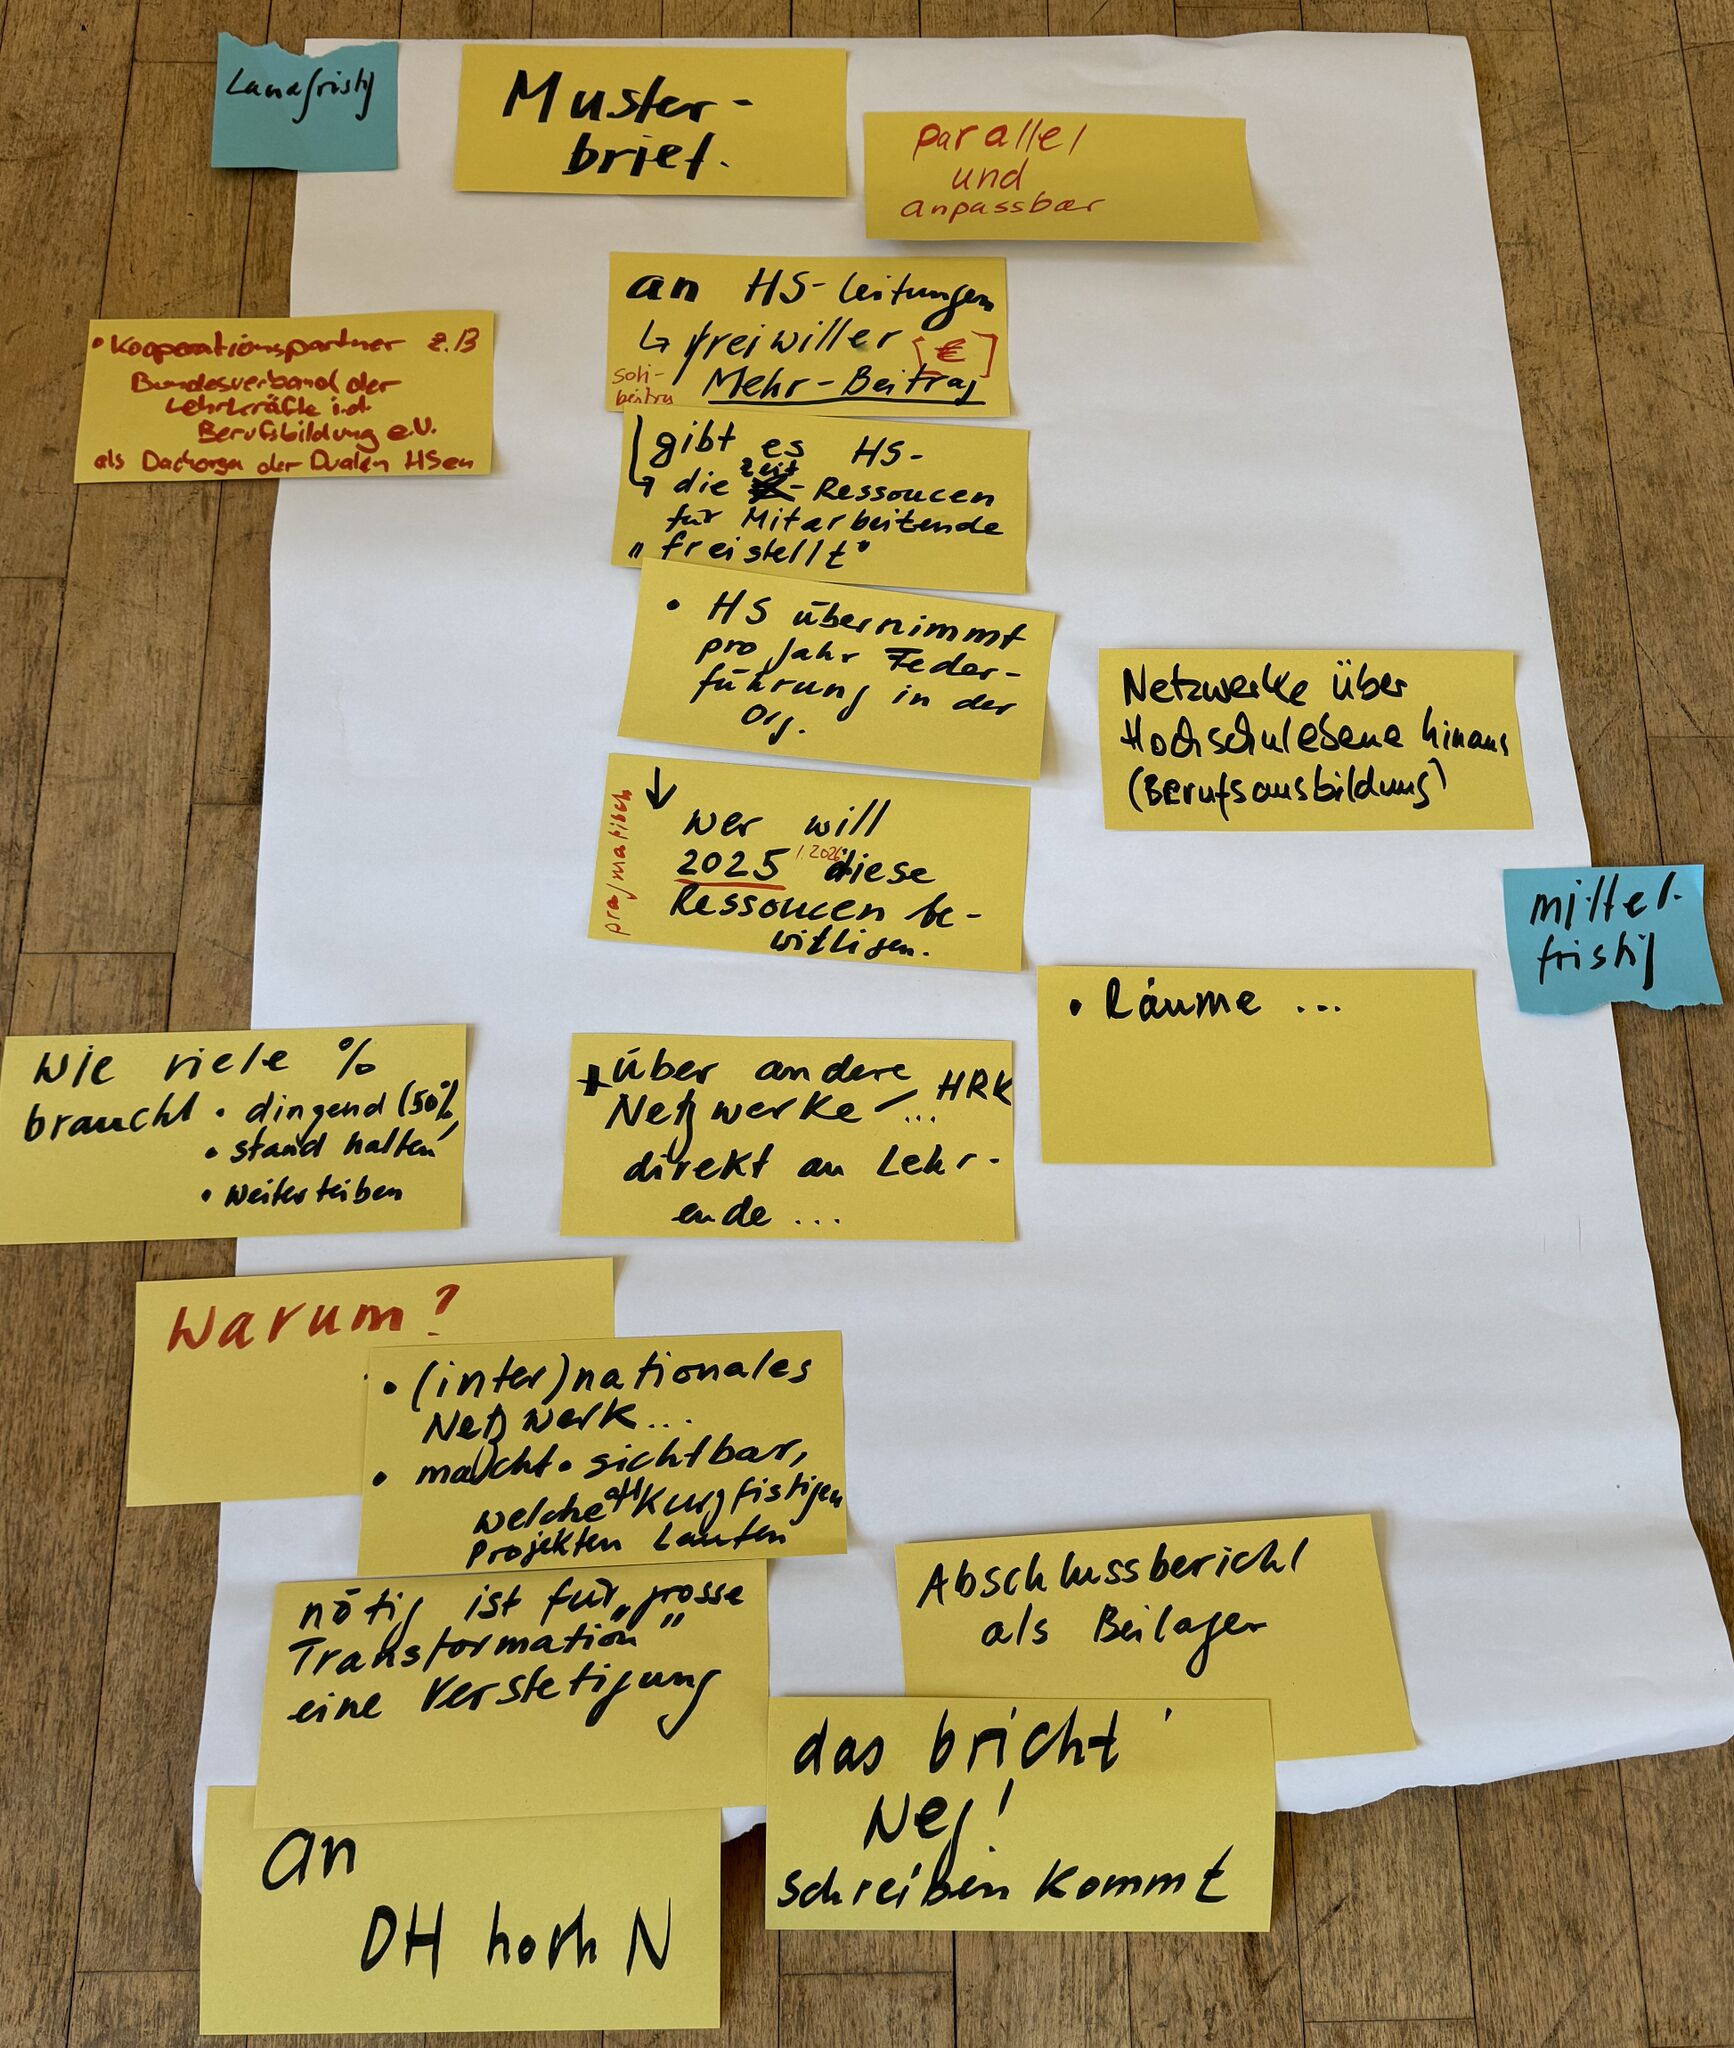 Langfristig
Muster-
brief.
parallel
und
anpassbar
an HS-Leitungen
↳ freiwiller [€]
soli-
beitra
Mehr-Beitrag
• Kooperationspartner z.B
Bundesverband der
Lehrkräfte i.d.
Berufsbildung e.V.
als Dachorga der Dualen HSen
gibt es HS-
↳ die zeit-Ressoucen
für Mitarbeitende
"freistellt"
• HS übernimmt
pro Jahr Feder-
führung in der
Org.
Netzwerke über
Hochschulebene hinaus
(Berufsausbildung)
pragmatisch
↓ wer will
2025 /. 2026 diese
Ressoucen be-
willigen.
mittel-
fristig
• Räume ...
wie viele %
braucht • dingend (50%)
• stand halten
• weiterteiben
+ über andere
Netzwerke - ... HRK
direkt an Lehr-
ende ...
Warum?
• (inter)nationales
Netzwerk...
• macht • sichtbar,
welche oft Kurzfistigen
Projekten Laufen
nötig ist für "grosse
Transformation"
eine Verstetigung
Abschlussbericht
als Beilager
das bricht
Neg!
schreiben kommt
an
DH hoch N